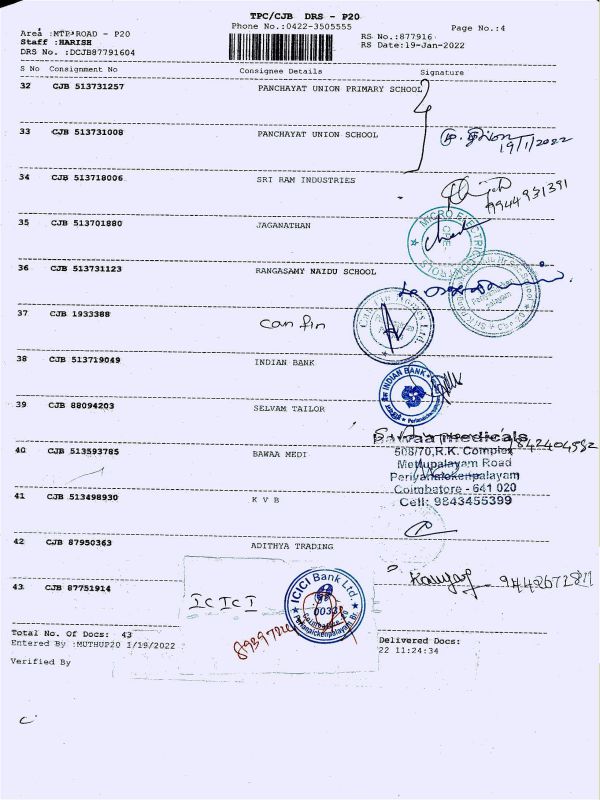 TPC/CJB DRS - P20
Phone No.:0422-3505555
Page No.:4
Area :MTP ROAD - P20
RS No.:877916
Staff :HARISH
RS Date:19-Jan-2022
DRS No. :DCJB87791604
S No Consignment No Consignee Details Signature
32 CJB 513731257 PANCHAYAT UNION PRIMARY SCHOOL
33 CJB 513731008 PANCHAYAT UNION SCHOOL
19/1/2022
34 CJB 513718006 SRI RAM INDUSTRIES
9944931391
35 CJB 513701880 JAGANATHAN
MICRO ELECTRICAL CONTROLS
CBE
36 CJB 513731123 RANGASAMY NAIDU SCHOOL
37 CJB 1933388 Can fin
Can Fin Homes Ltd.
38 CJB 513719049 INDIAN BANK
INDIAN BANK
39 CJB 88094203 SELVAM TAILOR
40 CJB 513593785 BAWAA MEDI
Bawaa Medicals
508/70,R.K. Complex
Mettupalayam Road
Periyanaickenpalayam
Coimbatore - 641 020
Cell: 9843455399
41 CJB 513498930 K V B
42 CJB 87950363 ADITHYA TRADING
43 CJB 87751914 ICICI
ICICI Bank Ltd.
Total No. Of Docs: 43
Delivered Docs:
Entered By :MUTHUP20 1/19/2022
22 11:24:34
Verified By